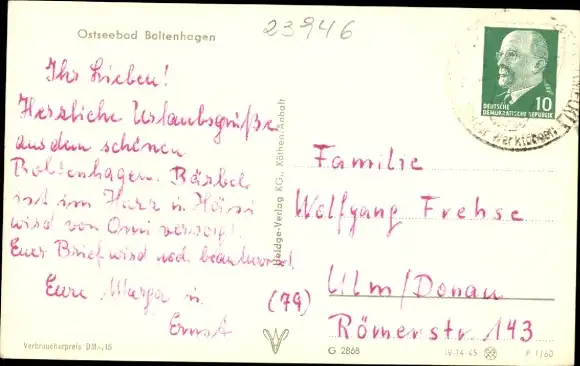 23946
Ostseebad Boltenhagen
Ihr Lieben!
Herzliche Urlaubsgrüße
aus dem schönen
Boltenhagen. Bärbel
ist im Harz u.
wird von Omi versorgt.
Euer Brief wird noch beantwortet.
Eure Marga u.
Ernst
Verbraucherpreis DM -,15
Heldge-Verlag KG., Köthen/Anhalt
10
DEUTSCHE
DEMOKRATISCHE REPUBLIK
Familie
Wolfgang Frehse
(79) Ulm/Donau
Römerstr. 143
G 2868
IV-14-45
P 1/60